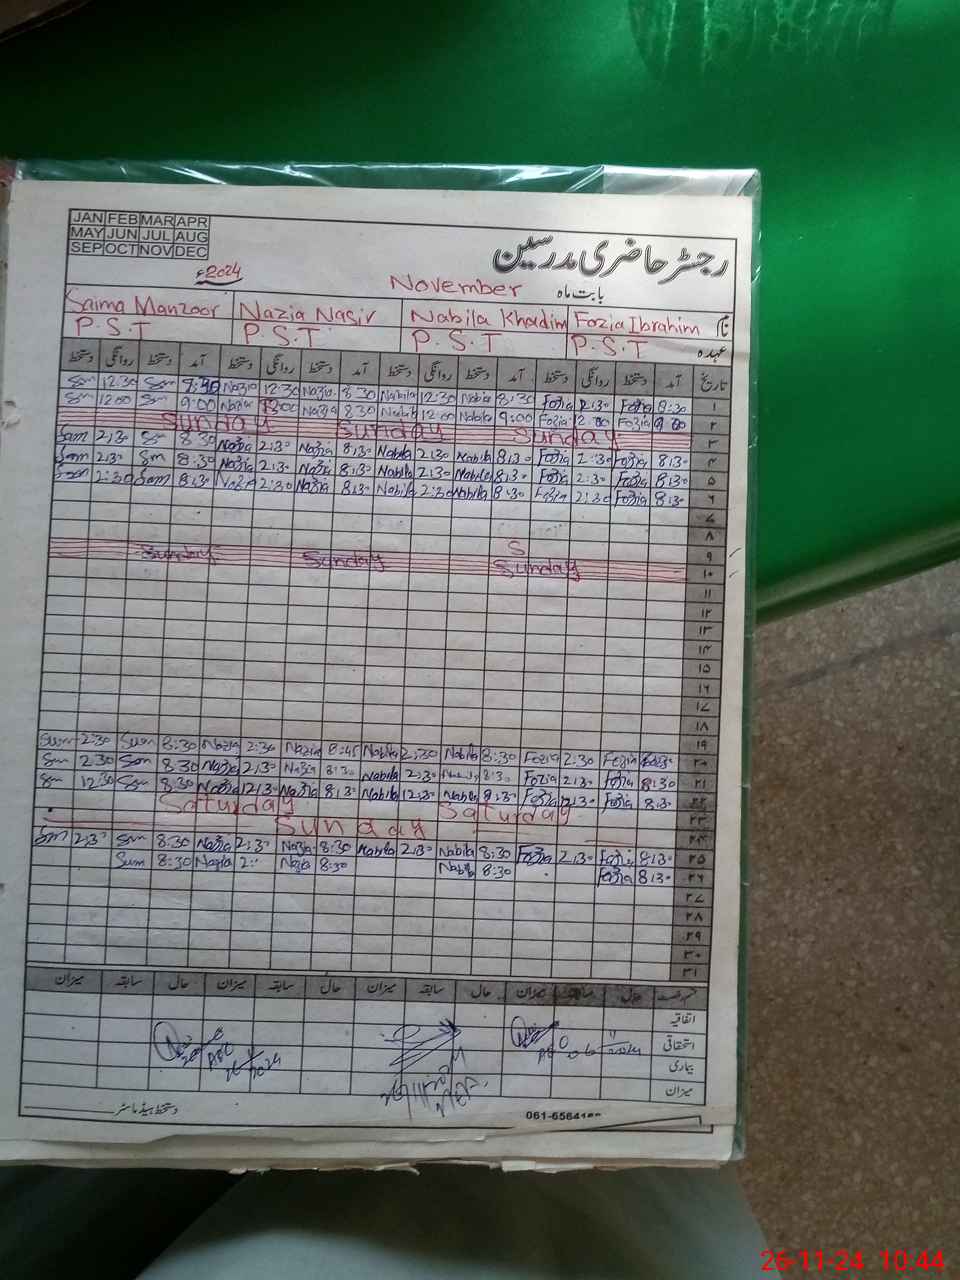 JAN FEB MAR APR
MAY JUN JUL AUG
SEP OCT NOV DEC
رجسٹر حاضری مدرسین
2024ء
November بابت ماہ
Saima Manzoor Nazia Nasir Nabila Khadim Fozia Ibrahim نام
P.S.T P.S.T P.S.T P.S.T عہدہ
دستخط روانگی دستخط آمد دستخط روانگی دستخط آمد دستخط روانگی دستخط آمد دستخط روانگی دستخط آمد تاریخ
Sam 12:30 Sam Nazia 12:30 Nazia 8:30 Nabila 12:30 Nabila 8:30 Fozia Fozia 8:30 ۱
Sam 12:00 Sam 9:00 Nazia Nazia 8:30 Nabila 12:00 Nabila 9:00 Fozia 12:00 Fozia 9:00 ۲
Sunday Sunday Sunday ۳
Sam 2:30 Sam 8:30 Nazia 2:30 Nazia 8:30 Nabila 2:30 Nabila 8:30 Fozia 2:30 Fozia 8:30 ۴
Sam 2:30 Sam 8:30 Nazia 2:30 Nazia 8:30 Nabila 2:30 Nabila 8:30 Fozia 2:30 Fozia 8:30 ۵
Sam 2:30 Sam 8:30 Nazia 2:30 Nazia 8:30 Nabila 2:30 Nabila 8:30 Fozia 2:30 Fozia 8:30 ۶
۷
۸
S ۹
Sunday Sunday Sunday ۱۰
۱۱
۱۲
۱۳
۱۴
۱۵
۱۶
۱۷
۱۸
۱۹
Sam 2:30 Sam 8:30 Nazia 2:30 Nazia 8:45 Nabila 2:30 Nabila 8:30 Fozia 2:30 Fozia ۲۰
Sam 2:30 Sam 8:30 Nazia 2:30 Nazia 8:30 Nabila 2:30 8:30 Fozia 2:30 Fozia 8:30 ۲۱
Sam 12:30 Sam 8:30 Nazia 12:30 Nazia 8:30 Nabila 12:30 Nabila 8:30 Fozia 12:30 Fozia 8:30 ۲۲
Saturday Saturday ۲۳
Sunday ۲۴
Sam 2:30 Sam 8:30 Nazia 2:30 Nazia 8:30 Nabila 2:30 Nabila 8:30 Fozia 2:30 Fozia 8:30 ۲۵
Sam 8:30 Nazia Nazia 8:30 Nabila 8:30 Fozia 8:30 ۲۶
۲۷
۲۸
۲۹
۳۰
۳۱
میزان سابقہ حال میزان سابقہ حال میزان سابقہ حال میزان سابقہ حال
اتفاقیہ
استحقاقی
بیماری
میزان
دستخط ہیڈ ماسٹر
26-11-24 10:44